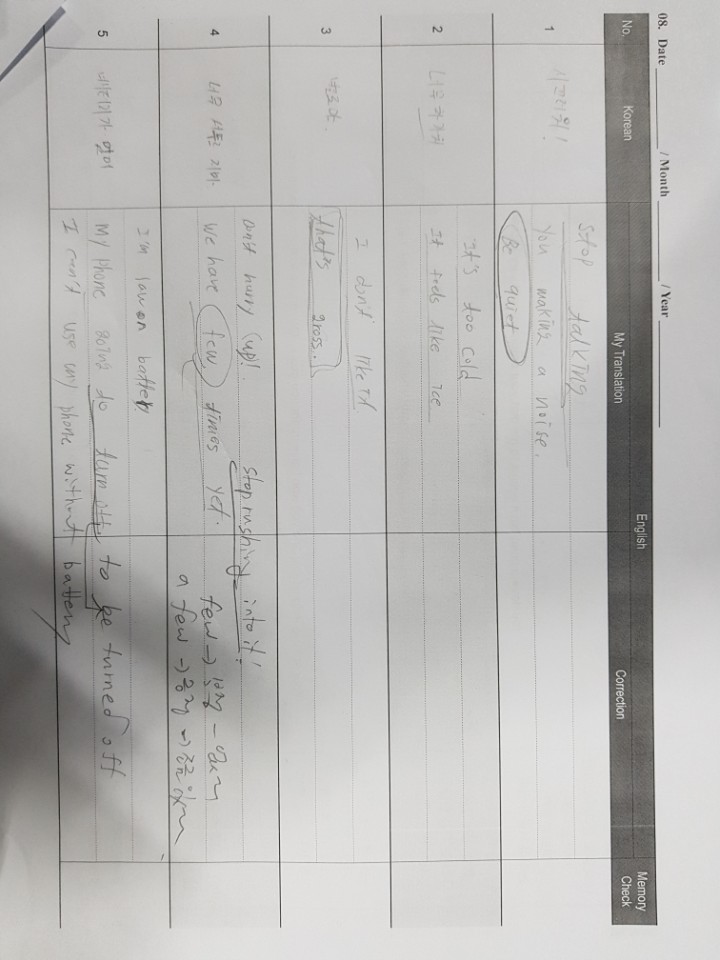 08. Date / Month / Year
No. Korean English Memory Check
My Translation Correction
1 시끄러워!
Stop talking
You making a noise.
Be quiet
2 너무 차가워
It's too cold
It feels like ice
3 별로야.
I don't like it
that's gross.
4 너무 서둘지마
Don't hurry (up)!
stop rushing into it!
We have few times yet.
few →
a few →
5 배터리가 없어
I'm low on battery
My phone going to turn off to be turned off
I can't use my phone without battery